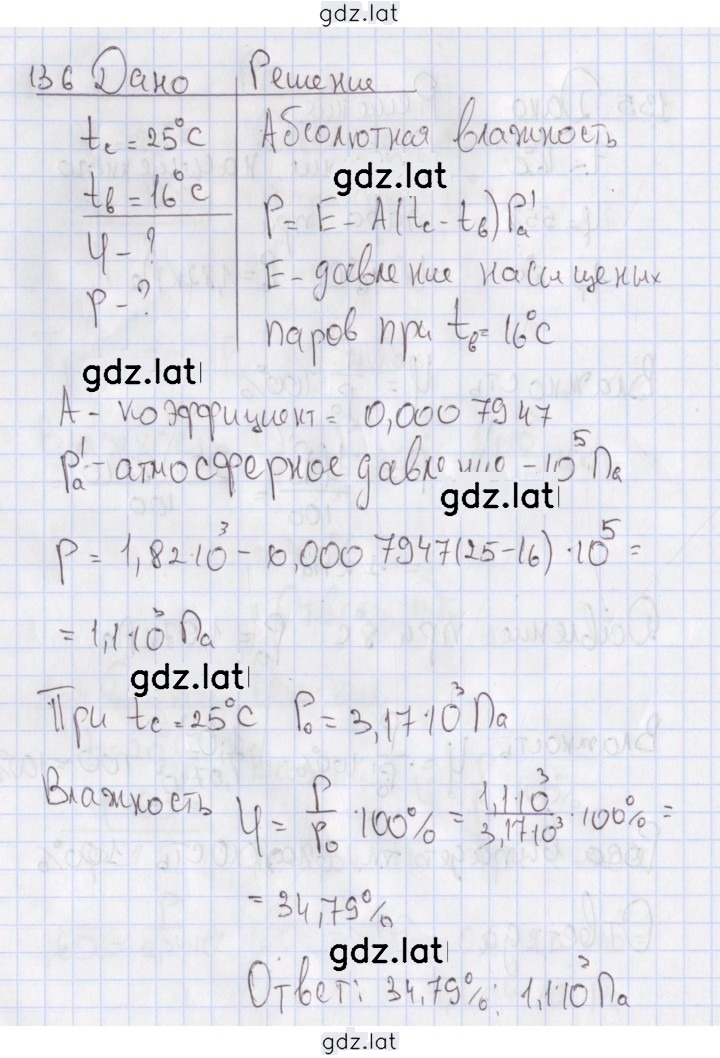 gdz.lat
136 Дано Решение
tc = 25°C Абсолютная влажность
gdz.lat
tв = 16°C P = E - A(tc - tв)Pa'
φ - ? E - давление насыщеных
P - ? паров при tв = 16°C
gdz.lat
A - коэффициент = 0,0007947
Pa' - атмосферное давление - 10⁵ Па
gdz.lat
P = 1,82·10³ - 0,0007947(25-16)·10⁵ =
= 1,1·10³ Па
gdz.lat
При tc = 25°C P₀ = 3,17·10³ Па
Влажность φ = P/P₀ · 100% = 1,1·10³/3,17·10³ · 100% =
= 34,79%
gdz.lat
Ответ: 34,79%; 1,1·10³ Па
gdz.lat